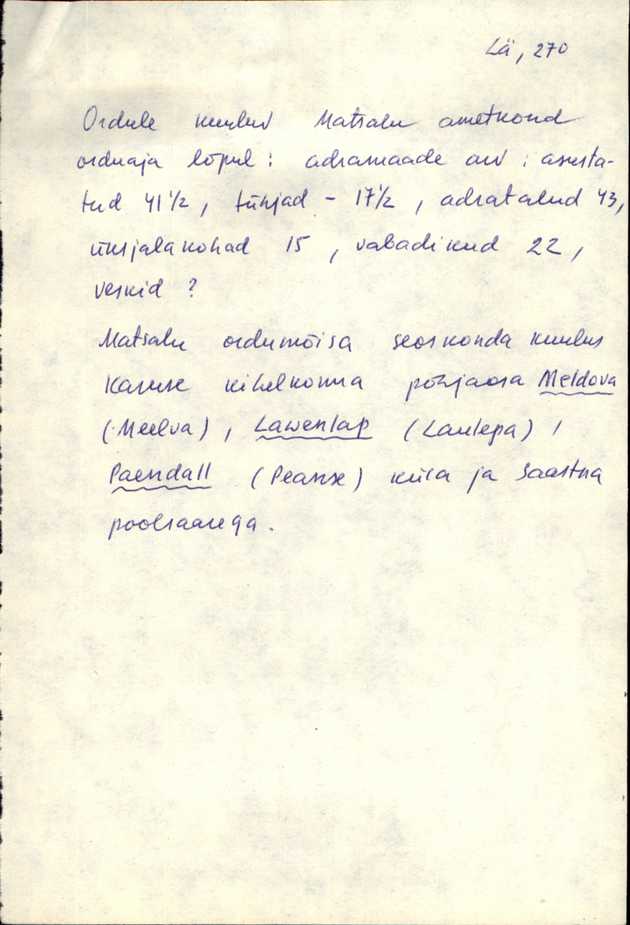 Lä, 270
Ordule kuuluv Matsalu ametkond
orduaja lõpul: adramaade arv: asusta-
tud 41 1/2, tühjad - 17 1/2, adratalud 43,
üksjalakohad 15, vabadikud 22,
veskid ?
Matsalu ordumõisa seoskonda kuulus
Karuse kihelkonna põhjaosa Meldova
(Meelva), Lawenlap (Laulepa),
Paendall (Peanse) küla ja Saastna
poolsaarega.